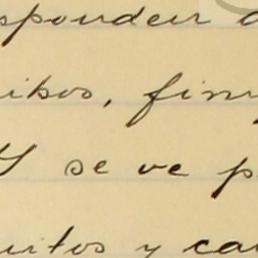 sponder a
ibos, fin
Y se ve p
uitos y ca